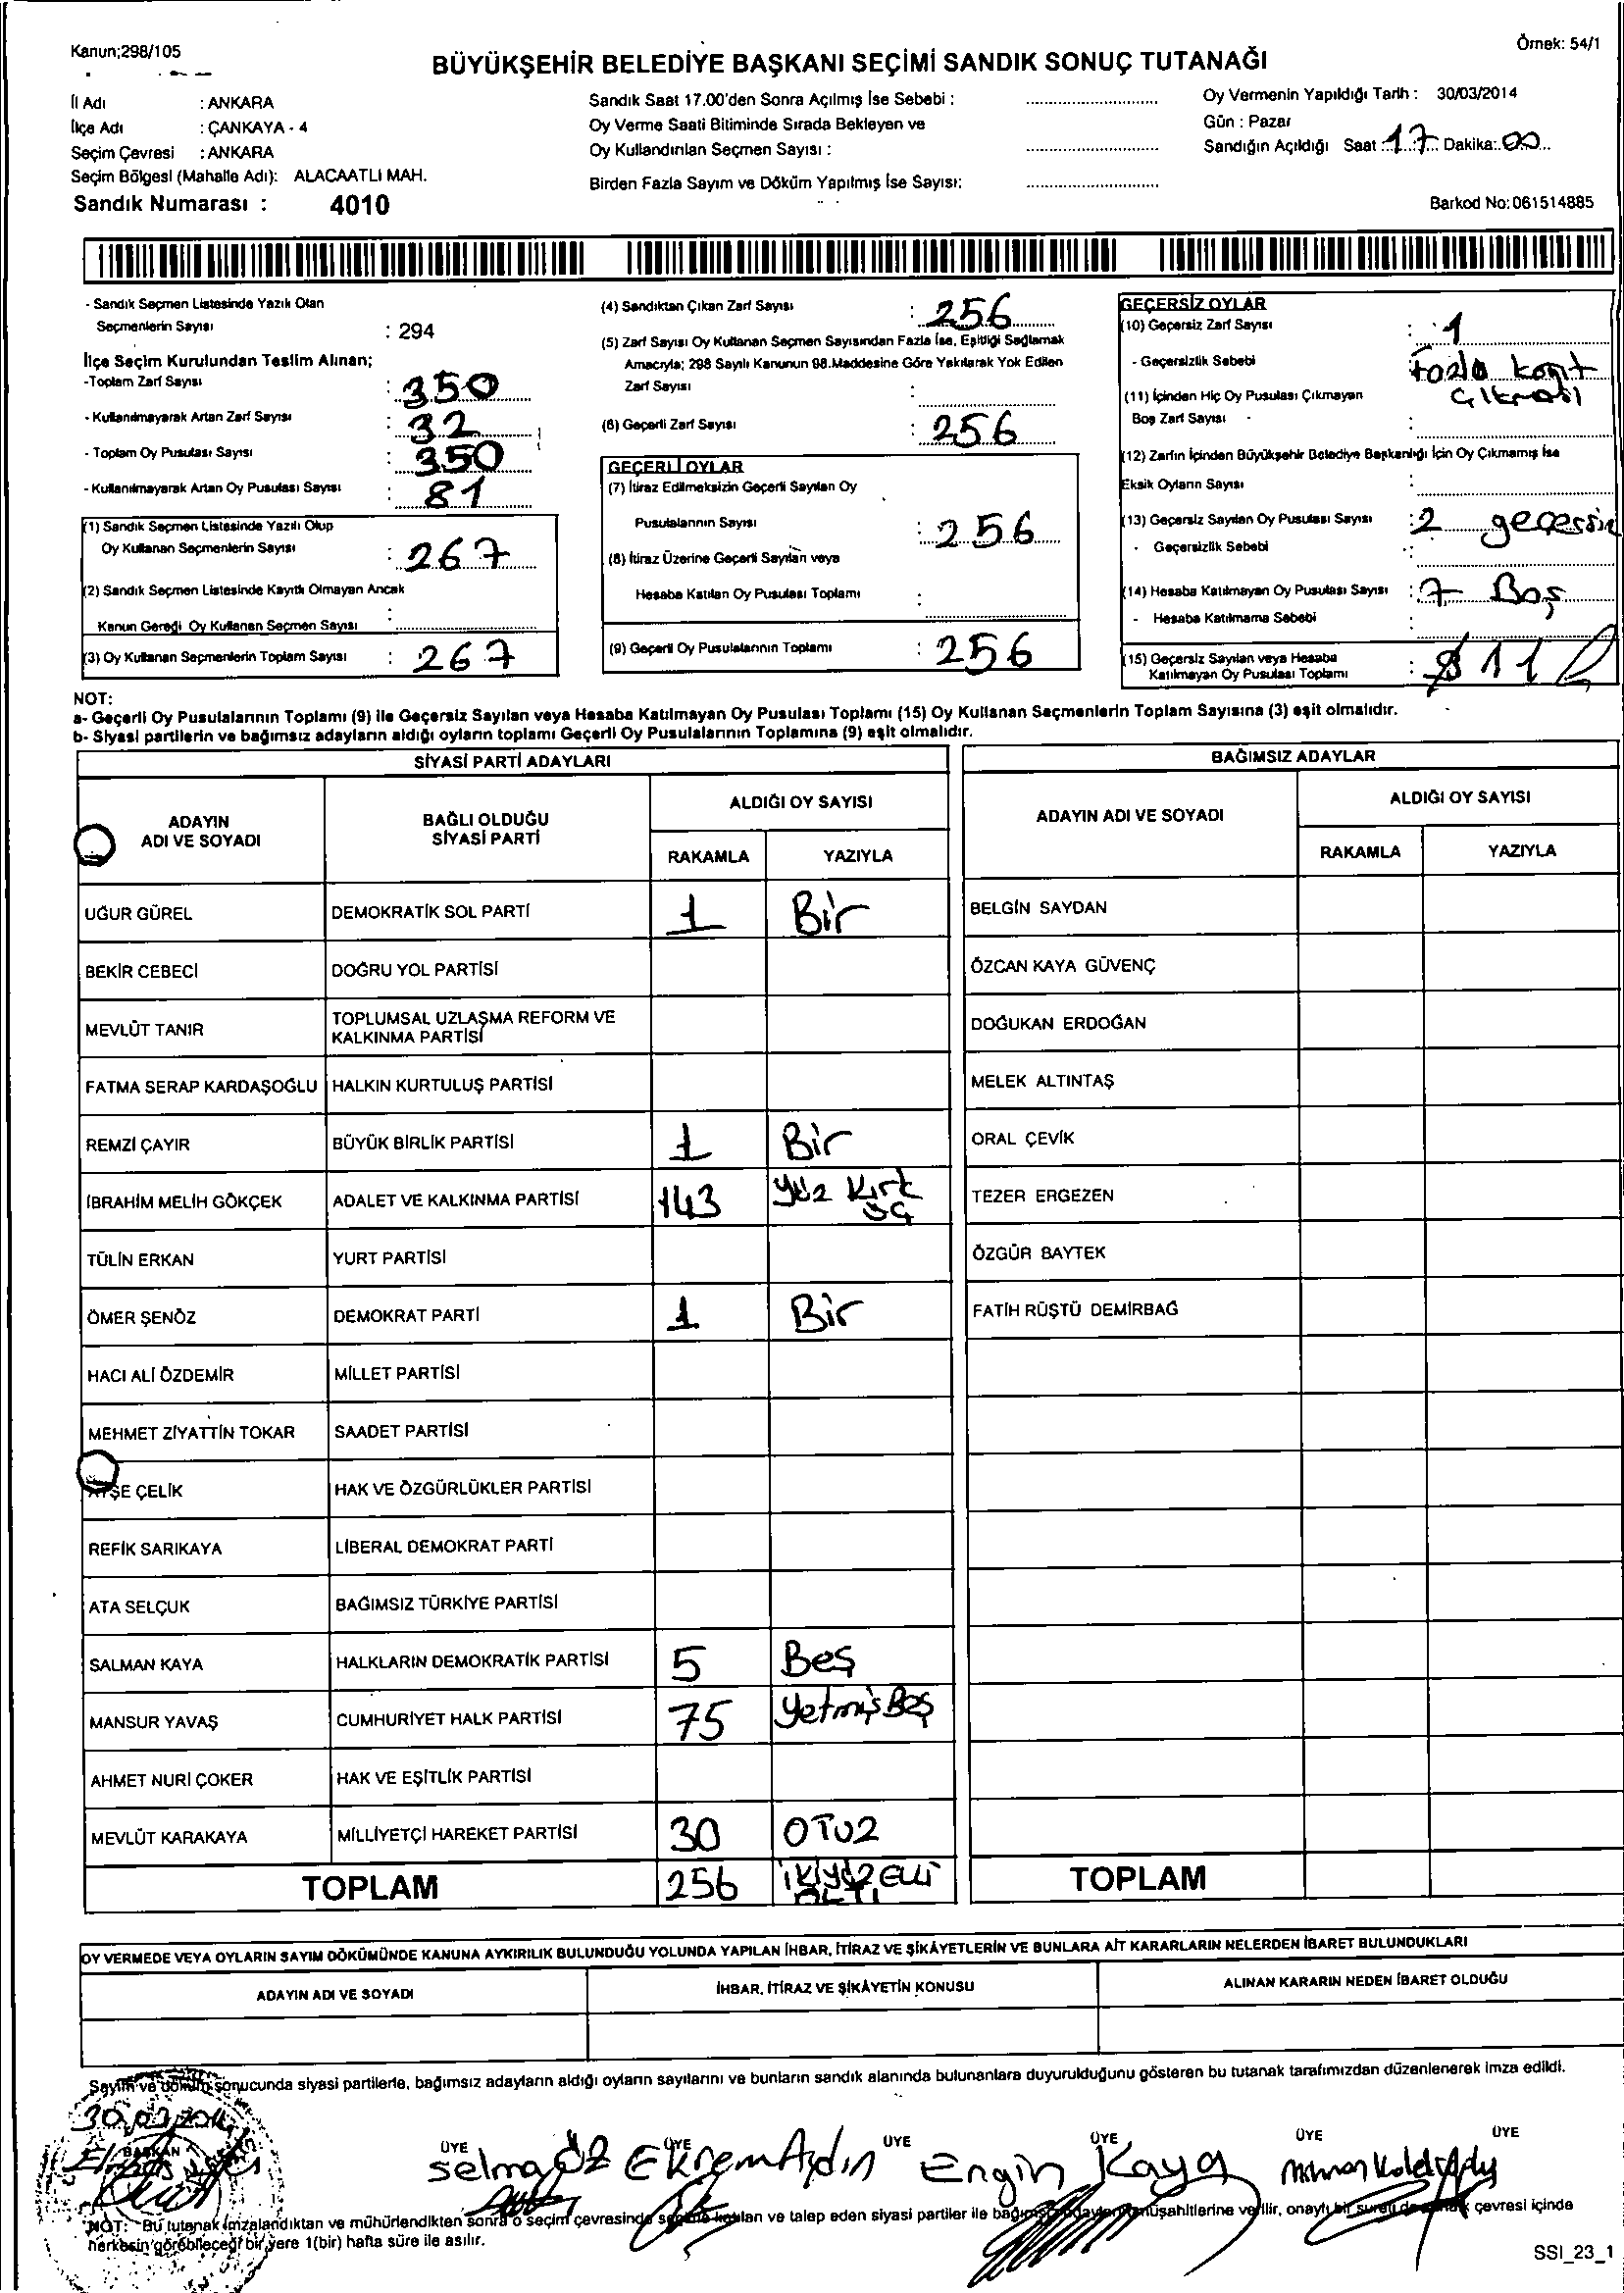 Kanun;298/105
Örnek: 54/1
BÜYÜKŞEHİR BELEDİYE BAŞKANI SEÇİMİ SANDIK SONUÇ TUTANAĞI
İl Adı : ANKARA
İlçe Adı : ÇANKAYA - 4
Seçim Çevresi : ANKARA
Seçim Bölgesi (Mahalle Adı): ALACAATLI MAH.
Sandık Numarası : 4010
Sandık Saat 17.00'den Sonra Açılmış İse Sebebi :
Oy Verme Saati Bitiminde Sırada Bekleyen ve
Oy Kullandırılan Seçmen Sayısı :
Birden Fazla Sayım ve Döküm Yapılmış İse Sayısı:
Oy Vermenin Yapıldığı Tarih : 30/03/2014
Gün : Pazar
Sandığın Açıldığı Saat : 17 Dakika: 00
Barkod No: 061514885
- Sandık Seçmen Listesinde Yazılı Olan
Seçmenlerin Sayısı : 294
İlçe Seçim Kurulundan Teslim Alınan;
-Toplam Zarf Sayısı : 350
- Kullanılmayarak Artan Zarf Sayısı : 32
- Toplam Oy Pusulası Sayısı : 350
- Kullanılmayarak Artan Oy Pusulası Sayısı : 81
(1) Sandık Seçmen Listesinde Yazılı Olup
Oy Kullanan Seçmenlerin Sayısı : 267
(2) Sandık Seçmen Listesinde Kayıtlı Olmayan Ancak
Kanun Gereği Oy Kullanan Seçmen Sayısı :
(3) Oy Kullanan Seçmenlerin Toplam Sayısı : 267
(4) Sandıktan Çıkan Zarf Sayısı : 256
(5) Zarf Sayısı Oy Kullanan Seçmen Sayısından Fazla İse, Eşitliği Sağlamak
Amacıyla; 298 Sayılı Kanunun 98.Maddesine Göre Yakılarak Yok Edilen
Zarf Sayısı :
(6) Geçerli Zarf Sayısı : 256
GEÇERLİ OYLAR
(7) İtiraz Edilmeksizin Geçerli Sayılan Oy
Pusulalarının Sayısı : 256
(8) İtiraz Üzerine Geçerli Sayılan veya
Hesaba Katılan Oy Pusulası Toplamı :
(9) Geçerli Oy Pusulalarının Toplamı : 256
GEÇERSİZ OYLAR
(10) Geçersiz Zarf Sayısı : 1
- Geçersizlik Sebebi : Fazla kağıt
çıkması
(11) İçinden Hiç Oy Pusulası Çıkmayan
Boş Zarf Sayısı - :
(12) Zarfın İçinden Büyükşehir Belediye Başkanlığı İçin Oy Çıkmamış İse
Eksik Oyların Sayısı :
(13) Geçersiz Sayılan Oy Pusulası Sayısı : 2 geçersiz
- Geçersizlik Sebebi :
(14) Hesaba Katılmayan Oy Pusulası Sayısı : 7 Boş
- Hesaba Katılmama Sebebi :
(15) Geçersiz Sayılan veya Hesaba
Katılmayan Oy Pusulası Toplamı : 11
NOT:
a- Geçerli Oy Pusulalarının Toplamı (9) ile Geçersiz Sayılan veya Hesaba Katılmayan Oy Pusulası Toplamı (15) Oy Kullanan Seçmenlerin Toplam Sayısına (3) eşit olmalıdır.
b- Siyasi partilerin ve bağımsız adayların aldığı oyların toplamı Geçerli Oy Pusulalarının Toplamına (9) eşit olmalıdır.
SİYASİ PARTİ ADAYLARI
ADAYIN ADI VE SOYADI
BAĞLI OLDUĞU SİYASİ PARTİ
ALDIĞI OY SAYISI
RAKAMLA YAZIYLA
UĞUR GÜREL DEMOKRATİK SOL PARTİ 1 Bir
BEKİR CEBECİ DOĞRU YOL PARTİSİ
MEVLÜT TANIR TOPLUMSAL UZLAŞMA REFORM VE
KALKINMA PARTİSİ
FATMA SERAP KARDAŞOĞLU HALKIN KURTULUŞ PARTİSİ
REMZİ ÇAYIR BÜYÜK BİRLİK PARTİSİ 1 Bir
İBRAHİM MELİH GÖKÇEK ADALET VE KALKINMA PARTİSİ 143 Yüz Kırk
üç
TÜLİN ERKAN YURT PARTİSİ
ÖMER ŞENÖZ DEMOKRAT PARTİ 1 Bir
HACI ALİ ÖZDEMİR MİLLET PARTİSİ
MEHMET ZİYATTİN TOKAR SAADET PARTİSİ
AYŞE ÇELİK HAK VE ÖZGÜRLÜKLER PARTİSİ
REFİK SARIKAYA LİBERAL DEMOKRAT PARTİ
ATA SELÇUK BAĞIMSIZ TÜRKİYE PARTİSİ
SALMAN KAYA HALKLARIN DEMOKRATİK PARTİSİ 5 Beş
MANSUR YAVAŞ CUMHURİYET HALK PARTİSİ 75 YetmişBeş
AHMET NURİ ÇOKER HAK VE EŞİTLİK PARTİSİ
MEVLÜT KARAKAYA MİLLİYETÇİ HAREKET PARTİSİ 30 OTUZ
TOPLAM 256 İKİYÜZELLİ
ALTI
BAĞIMSIZ ADAYLAR
ADAYIN ADI VE SOYADI
ALDIĞI OY SAYISI
RAKAMLA YAZIYLA
BELGİN SAYDAN
ÖZCAN KAYA GÜVENÇ
DOĞUKAN ERDOĞAN
MELEK ALTINTAŞ
ORAL ÇEVİK
TEZER ERGEZEN
ÖZGÜR BAYTEK
FATİH RÜŞTÜ DEMİRBAĞ
TOPLAM
OY VERMEDE VEYA OYLARIN SAYIM DÖKÜMÜNDE KANUNA AYKIRILIK BULUNDUĞU YOLUNDA YAPILAN İHBAR, İTİRAZ VE ŞİKÂYETLERİN VE BUNLARA AİT KARARLARIN NELERDEN İBARET BULUNDUKLARI
ADAYIN ADI VE SOYADI İHBAR, İTİRAZ VE ŞİKÂYETİN KONUSU ALINAN KARARIN NEDEN İBARET OLDUĞU
Sayım ve döküm sonucunda siyasi partilerle, bağımsız adayların aldığı oyların sayılarını ve bunların sandık alanında bulunanlara duyurulduğunu gösteren bu tutanak tarafımızdan düzenlenerek imza edildi.
30.03.2014
BAŞKAN ÜYE ÜYE ÜYE ÜYE ÜYE ÜYE
Selma ÖZ Ekrem Aydın Engin Kaya
NOT: Bu tutanak imzalandıktan ve mühürlendikten sonra o seçim çevresinde seçime katılan ve talep eden siyasi partiler ile bağımsız adayların müşahitlerine verilir, onaylı bir sureti de sandık çevresi içinde
herkesin görebileceği bir yere 1(bir) hafta süre ile asılır.
SSI_23_1